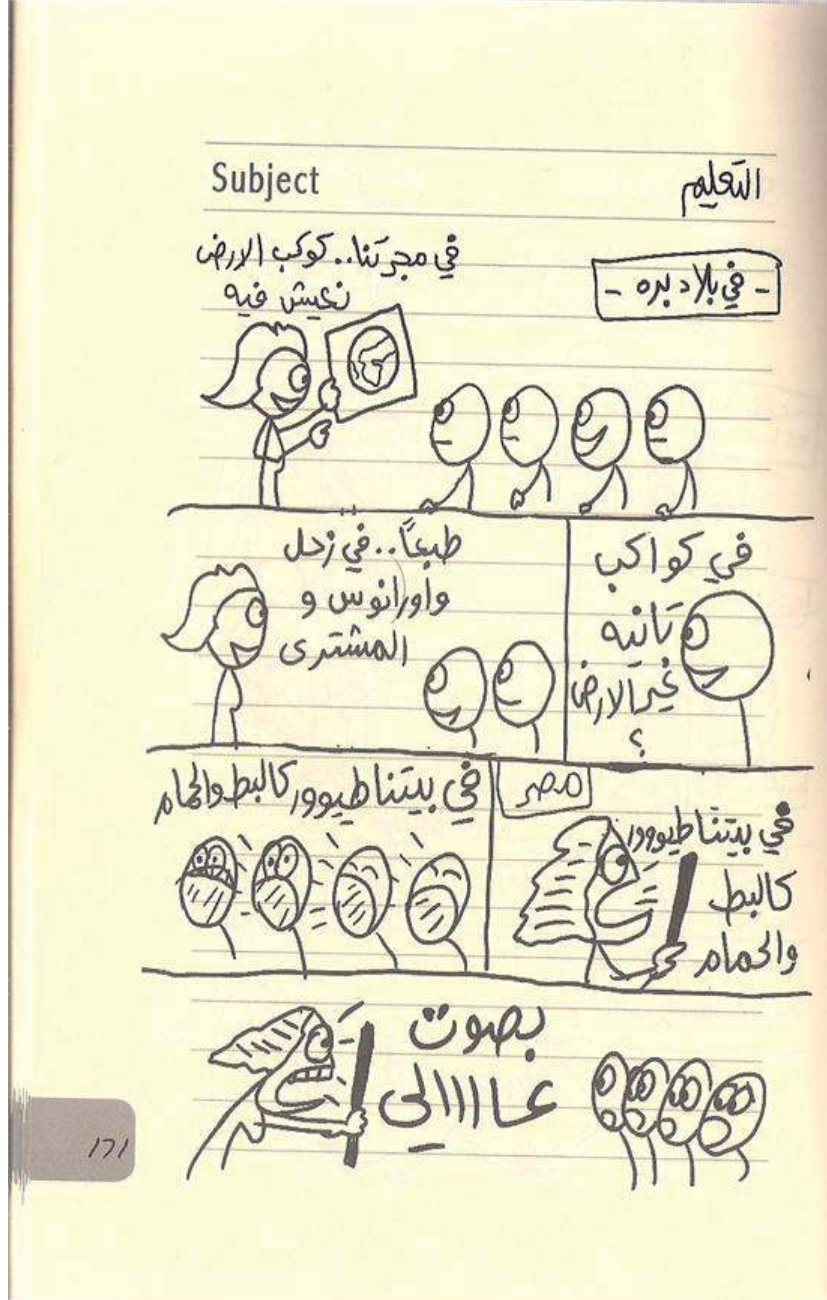 Subject
التعليم
- في بلاد بره -
في مجرتنا.. كوكب الارض
نعيش فيه
في كواكب
تانيه
غير الارض
؟
طبعاً.. في زحل
واورانوس و
المشترى
مصر
في بيتنا طيووور
كالبط
والحمام
في بيتنا طيوور كالبط والحمام
بصوت
عااالي
١٦١